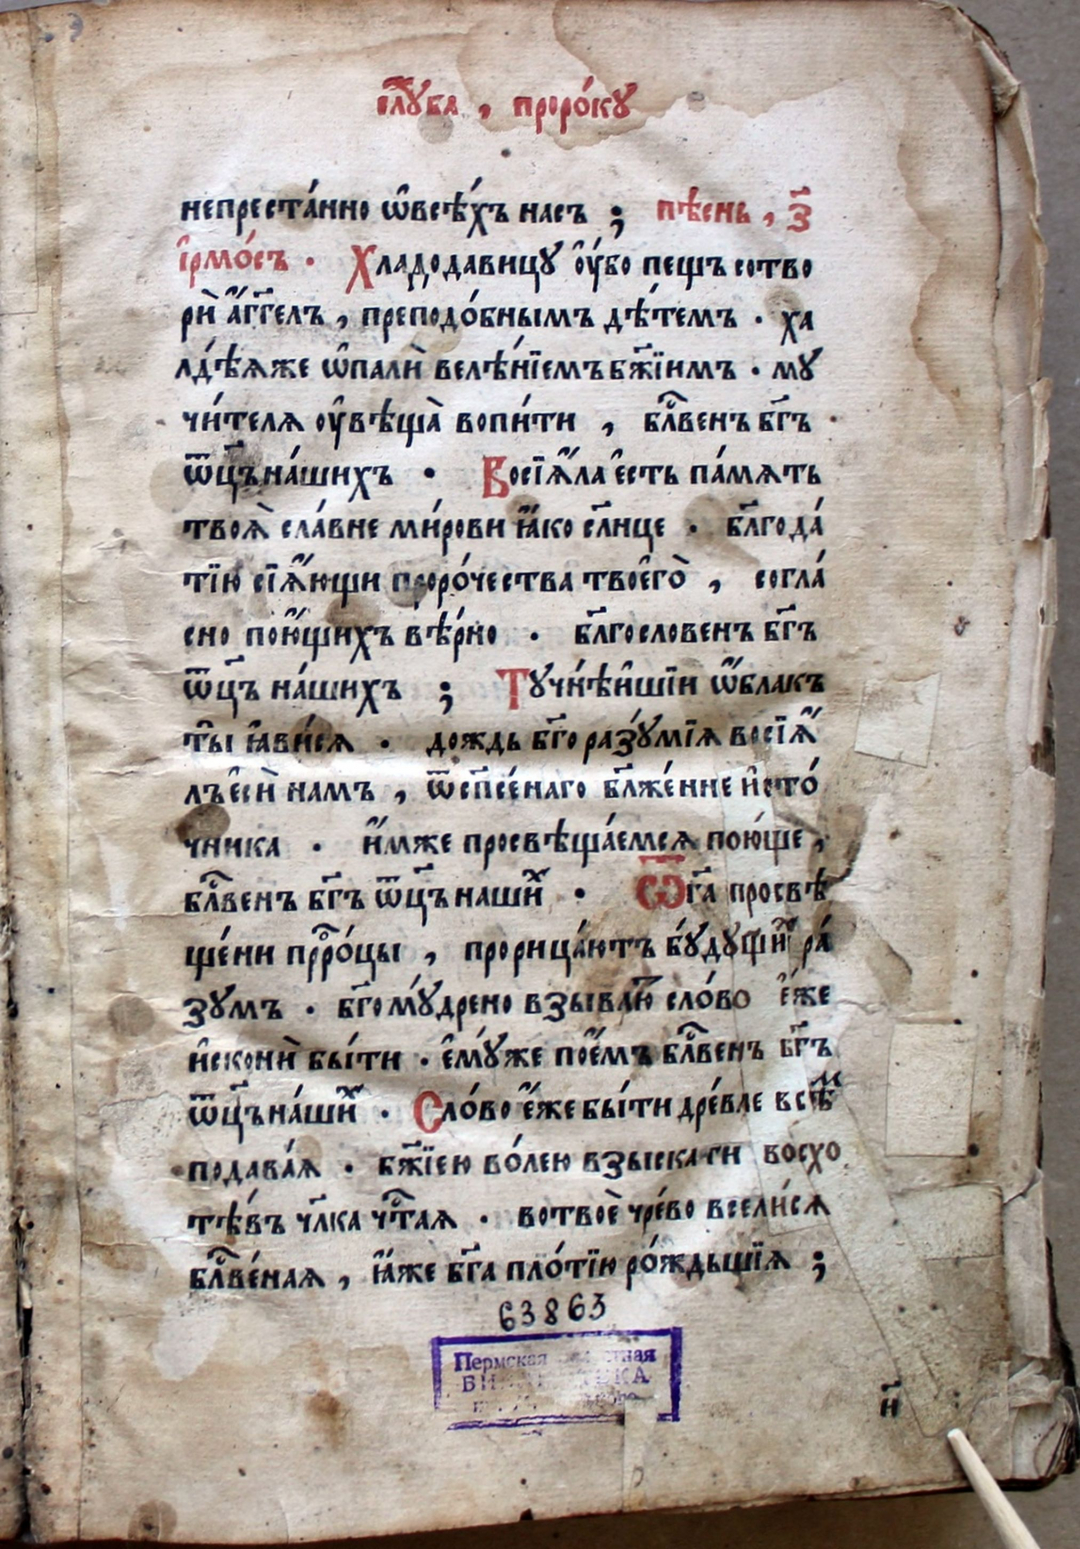 слу́ба , проро́ку
непреста́нно ѡ҆всѣ́хъ насъ ; пѣ́снь , з҃
і҆рмо́съ . Хладодавицу ѹ҆́бо пещъ сотво
рѝ а҆́гг҃елъ , преподо́бнымъ дѣ́темъ . ха
лдѣ́ѧже ѡ҆палѝ велѣ́нїемъ бж҃їимъ . му
чи́телѧ оу҆вѣща̀ вопи́ти , блг҃венъ бг҃ъ
ѿц҃ъ на́шихъ . Восїѧ́ла є҆сть па́мѧть
твоѧ̀ сла́вне ми́рови ꙗ҆́ко сл҃нце . блг҃ода́
тїю сїѧ́ющи проро́чества твоє҆го̀ , согла́
сно пою́щихъ вѣ́рно . блг҃ословенъ бг҃ъ
ѿц҃ъ на́шихъ ; Тучнѣ́йшїи ѡ҆́блакъ
ты̀ ꙗ҆ви́сѧ . дождь бг҃оразꙋ́мїѧ восїѧ́
лъ є҆сѝ намъ , ѿ сп҃се́наго бл҃же́нне и҆сто́
чника . и҆́мже просвѣща́емсѧ пою́ще ,
блг҃венъ бг҃ъ ѿц҃ъ нашиⷯ . Ѿ бг҃а просвѣ
ще́ни прⷪ҇ро́цы , прорица́ютъ бꙋ́дꙋщиⷯ ра́
зумъ . бг҃омꙋ́дрено взываю̀ сло́во є҆́же
и҆сконѝ бы́ти . є҆мꙋ́же пое́мъ блг҃венъ бг҃ъ
ѿц҃ъ на́шиⷯ . Сло́во є҆́же бы́ти дре́вле всѣⷨ
подава́ѧ . бж҃їею во́лею взыскати восхо
тѣ́въ чл҃ка чⷭ҇таѧ . во твоѐ чре́во всели́сѧ
блг҃ве́наѧ , ꙗ҆́же бг҃а пло́тїю ро́ждьшїѧ ;
63863
Пермская
н҃